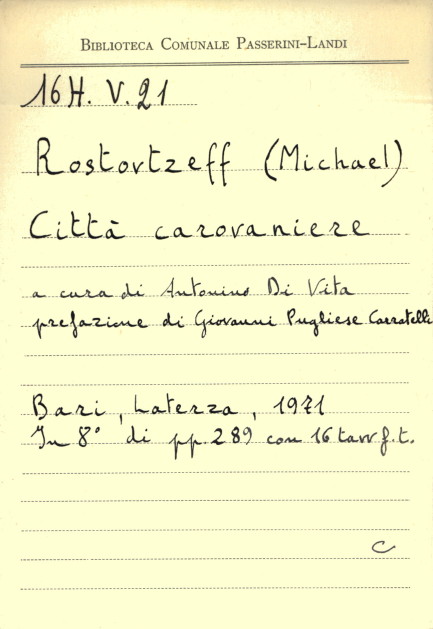 BIBLIOTECA COMUNALE PASSERINI-LANDI
16H. V. 21
Rostovtzeff (Michael)
Città carovaniere
a cura di Antonino Di Vita
prefazione di Giovanni Pugliese Carratelli
Bari, Laterza, 1971
In 8° di pp. 289 con 16 tavv f. t.
C